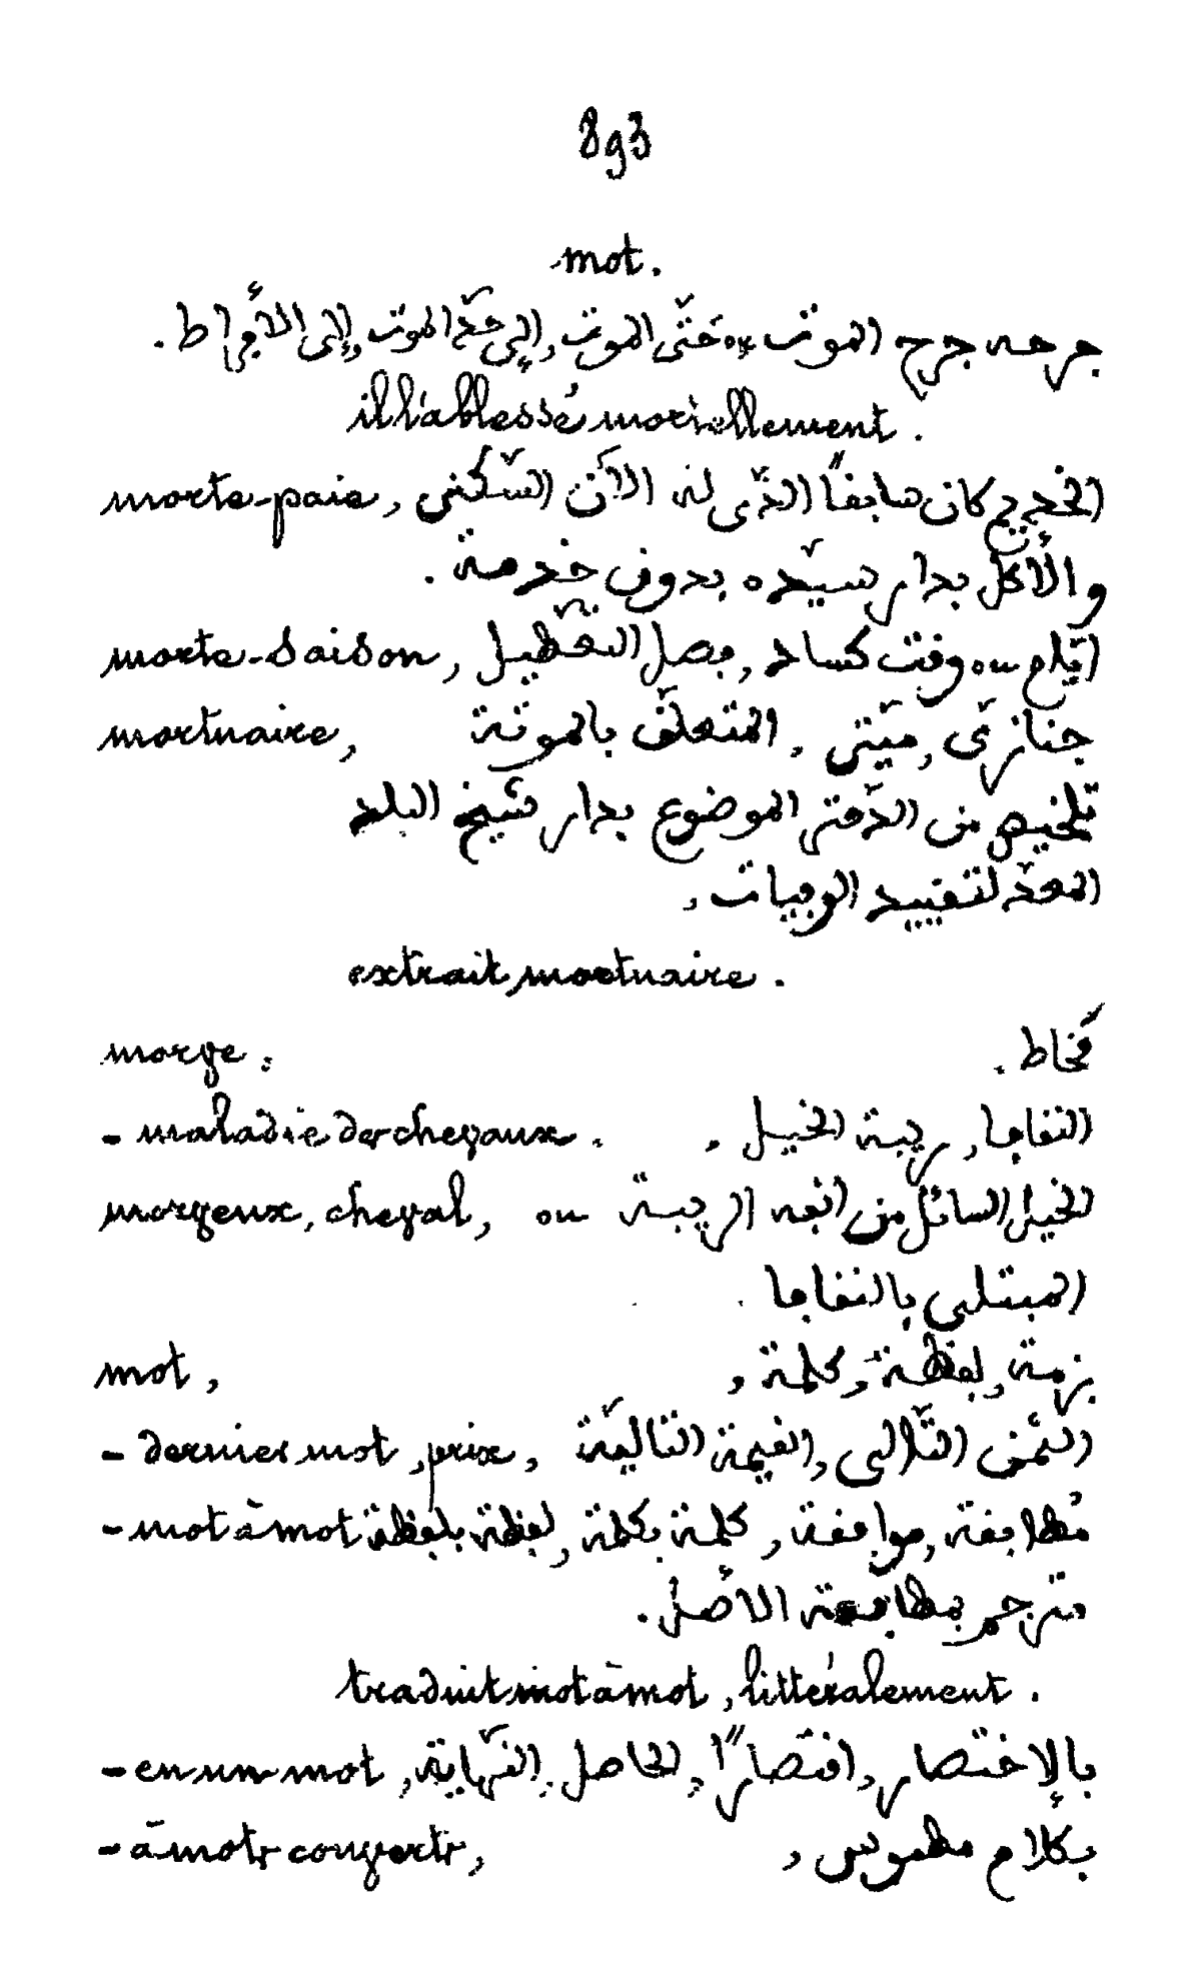 893
mot.
جرحه جرح الموت ou حتّى الموت, إلى حدّ الموت, إلى الأفراط.
il l'a blessé mortellement.
morte-paie, الخديم كان سابقاً الذّى له الآن السّكنى
والأكل بدار سيّده بدون خدمة.
morte-saison, ايّام ou وقت كساد, فصل التعطيل
mortuaire, جنازىّ, ميّتى, المتعلّق بالموتة
تلخيص من الدّفتر الموضوع بدار شيخ البلد
المعدّ لتقييد الوفيات,
extrait mortuaire.
morve. مُخاط.
- maladie des chevaux. النفافا, ريبة الخيل.
morveux, cheval, الخيل السائل من انفه ou الريبة
المبتلى بالنفافا.
mot, بزمة, لفظة, كلمة,
- dernier mot, prix, الثمن التّالى, القيمة التّاليّة
- mot à mot مُطابقة, موافقة, كلمة بكلمة, لفظة بلفظة
مترجم بمطابقة الأصل.
traduit mot à mot, littéralement.
- en un mot, بالإختصار, اقتصاراً, الحاصل, النّهاية
- à mots couverts, بكلام مطموس,